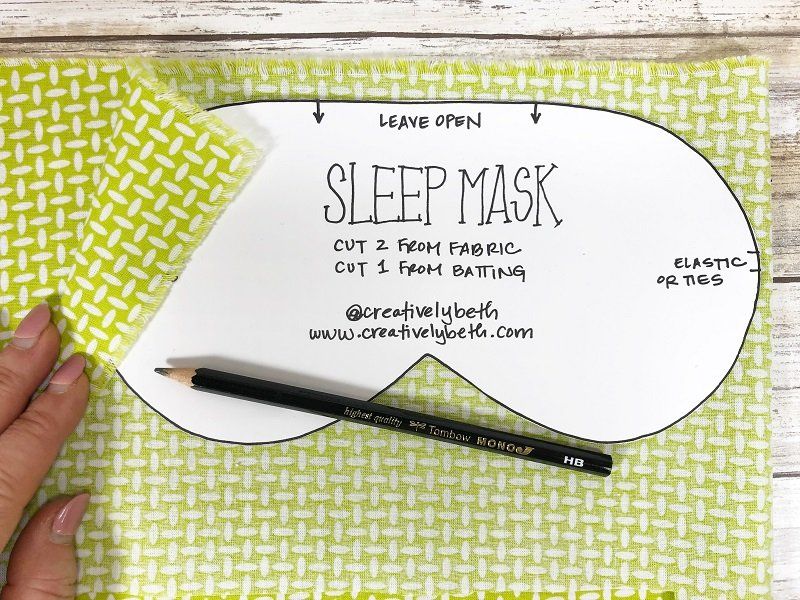 LEAVE OPEN
SLEEP MASK
CUT 2 FROM FABRIC
CUT 1 FROM BATTING
ELASTIC
OR TIES
@creativelybeth
www.creativelybeth.com
highest quality Tombow MONO HB